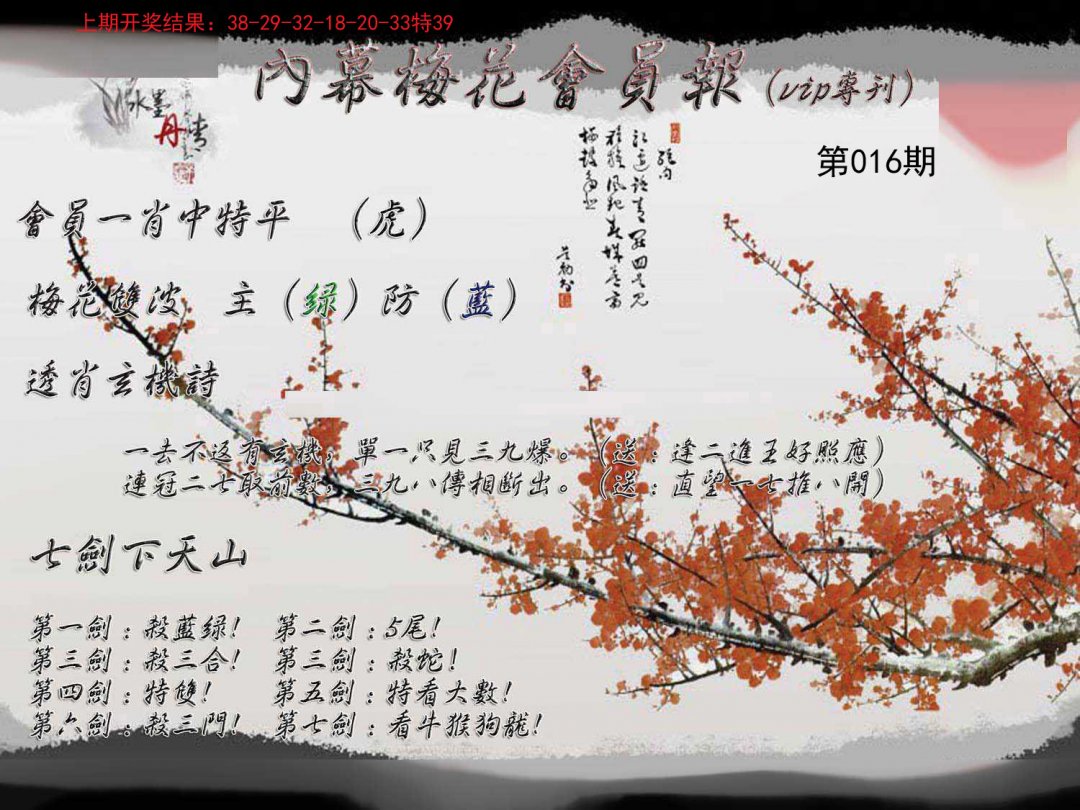 上期开奖结果：38-29-32-18-20-33特39
內幕梅花會員報（vip專刊）
水墨
丹情
第016期
會員一肖中特平　（虎）
梅花雙波　主（绿）防（藍）
透肖玄機詩
一去不返有玄機，單一只見三九爆。（送：逢二進五好照應）
連冠二七取前數，三九八傳相斷出。（送：直望一七推八開）
七劍下天山
第一劍：殺藍绿！　第二劍：5尾！
第三劍：殺三合！　第三劍：殺蛇！
第四劍：特雙！　第五劍：特看大數！
第六劍：殺三門！　第七劍：看牛猴狗龍！